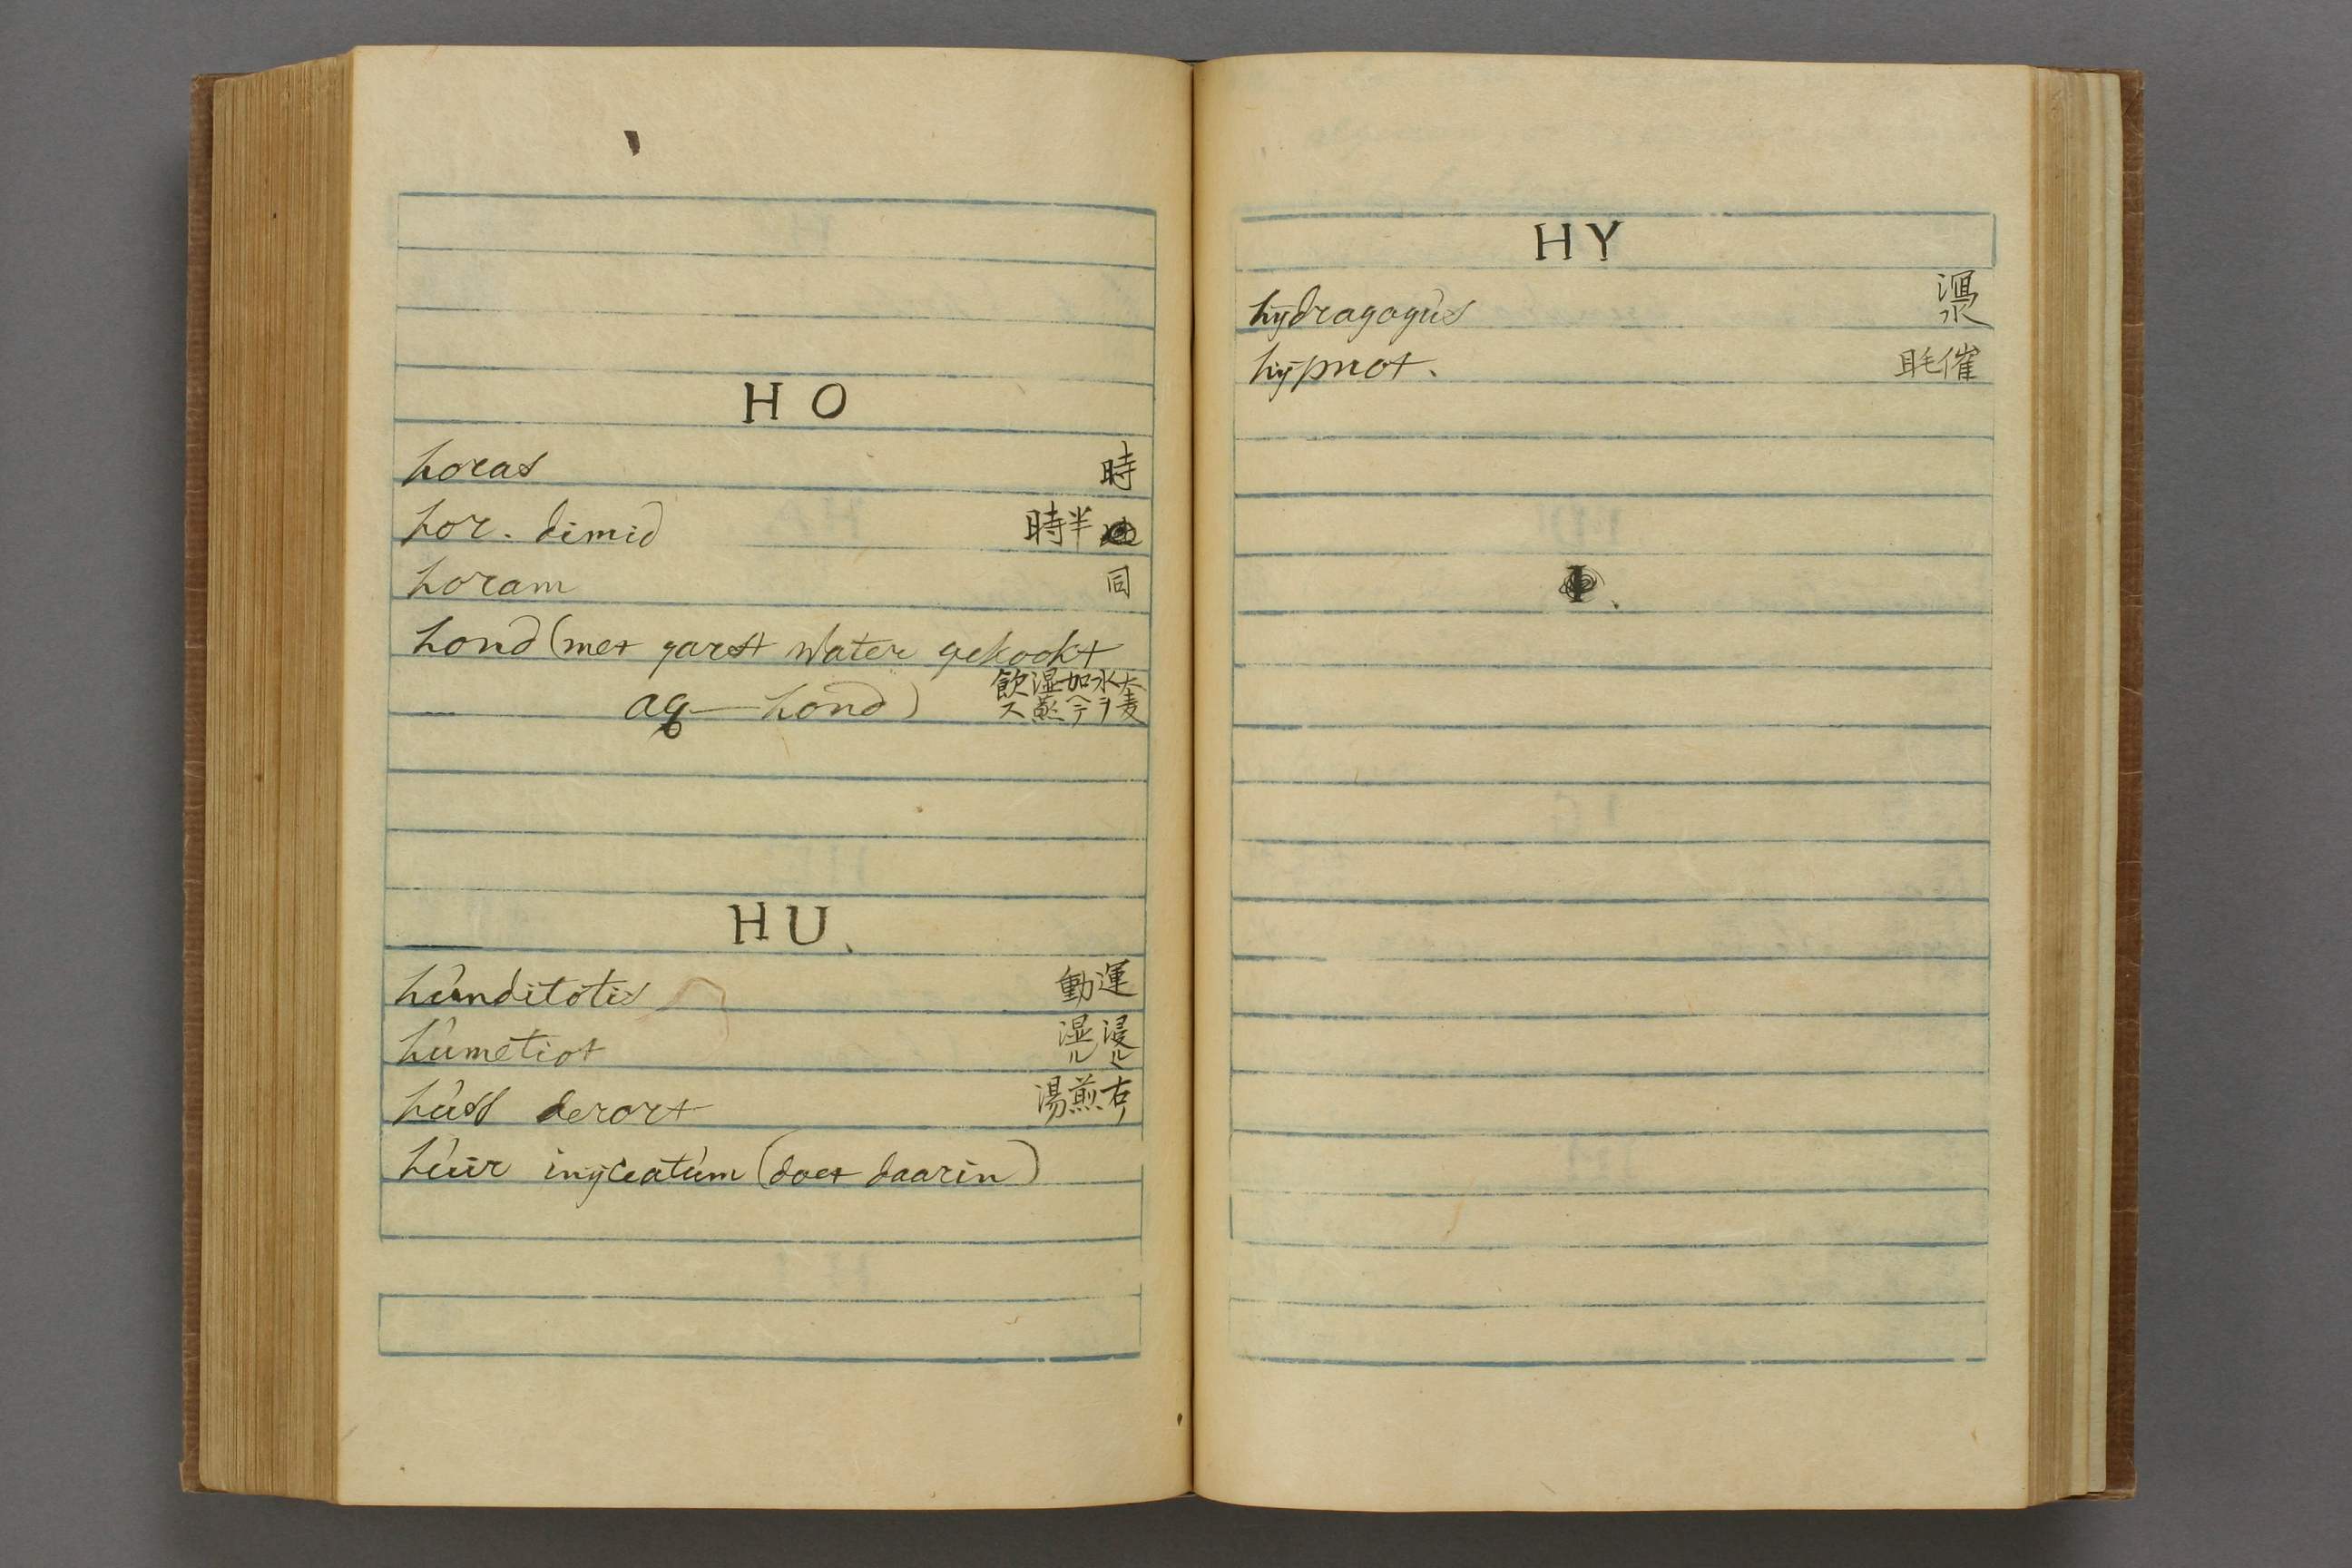 HO
horas 時
hor. dimid 半時
horam 同
hond (met garst water gekookt
aq— hond) 大麦水ヲ加ヘテ湿蒸飲ス
HU.
hùnditotis 運動
hùmetiot 浸ル湿ル
hùss derort 右ノ煎湯
hùir inÿceatùm (doet daarin)
HY
hÿdragogùs 瀉水
hÿpnot. 催眠